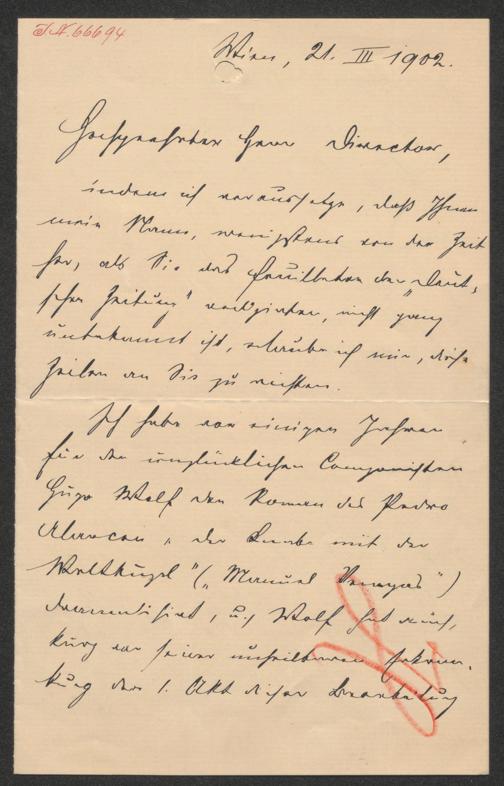 I.N. 66694
Wien, 21. III 1902.
Hochgeehrter Herr Director,
indem ich voraussetze, daß Ihnen
mein Name, wenigstens von der Zeit
her, als Sie das Feuilleton der „Deut-
schen Zeitung" redigirten, nicht ganz
unbekannt ist, erlaube ich mir, diese
Zeilen an Sie zu richten.
Ich habe vor einigen Jahren
für den unglücklichen Componisten
Hugo Wolf den Roman des Pedro
Alarcon „der Knabe mit der
Weltkugel" („Manuel Venegas")
dramatisirt, u. Wolf hat auch,
kurz vor seiner unheilbaren Erkran-
kung den 1. Akt dieser Bearbeitung